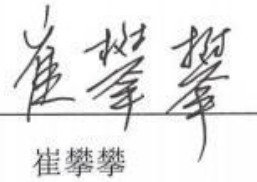 崔攀攀
崔攀攀